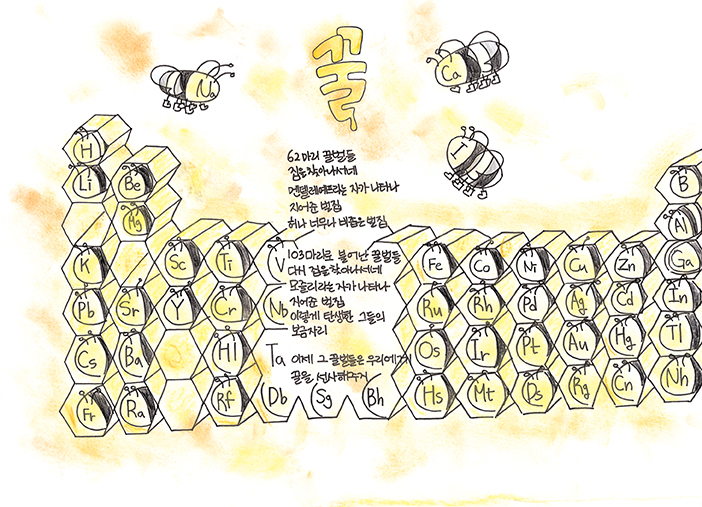 꿀
Na
Ca
I
62마리 꿀벌들
집을 찾아나서네
멘델레예프라는 자가 나타나
지어준 벌집
허나 너무나 비좁은 벌집
103마리로 불어난 꿀벌들
다시 집을 찾아나서네
모즐리라는 자가 나타나
지어준 벌집
이렇게 탄생한 그들의
보금자리
이제 그 꿀벌들은 우리에게
꿀을 선사해주지
H
Li Be B
Mg Al
K Sc Ti V Fe Co Ni Cu Zn Ga
Pb Sr Y Cr Nb Ru Rh Pd Ag Cd In
Cs Ba Hl Ta Os Ir Pt Au Hg Tl
Fr Ra Rf Db Sg Bh Hs Mt Ds Rg Cn Nh